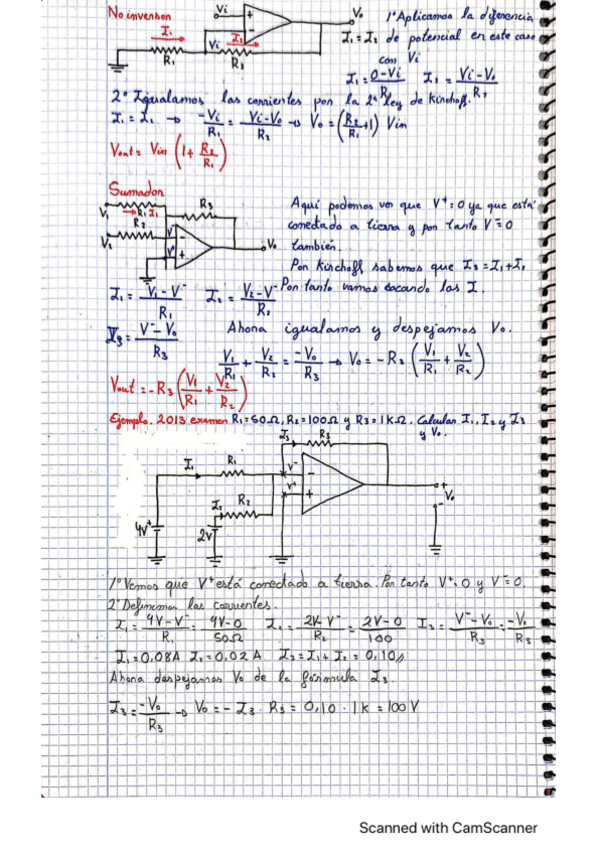 No inversor
Vi
Vo
1º Aplicamos la diferencia
I1
I1 = I2 de potencial en este caso
Vi I2
con Vi
R1
R2
I1 = 0-Vi/R1 I2 = Vi-Vo/R2
2º Igualamos las corrientes por la 2ª Ley de Kirchoff.
I1 = I2 → -Vi/R1 = Vi-Vo/R2 → Vo = (R2/R1 +1) Vin
Vout = Vin (1 + R2/R1)
Sumador
R3
Aquí podemos ver que V+ = 0 ya que está
V1 → R1 I1
conectado a tierra y por tanto V- = 0
R2
V2
V-
V+
Vo también.
Por Kirchoff sabemos que I3 = I1 + I2
I1 = V1 - V-/R1 I2 = V2 - V-/R2 Por tanto vamos sacando las I.
I3 = V- - Vo/R3
Ahora igualamos y despejamos Vo.
V1/R1 + V2/R2 = -Vo/R3 → Vo = -R3 (V1/R1 + V2/R2)
Vout = -R3 (V1/R1 + V2/R2)
Ejemplo. 2013 examen R1 = 50Ω, R2 = 100Ω y R3 = 1KΩ. Calcular I1, I2 y I3
y Vo.
I3 R3
I1 R1
V-
V+
R2
I2
Vo
4V
2V
1º Vemos que V+ está conectado a tierra. Por tanto V+ = 0 y V- = 0.
2º Definimos las corrientes.
I1 = 4V - V-/R1 = 4V-0/50Ω I2 = 2V - V-/R2 = 2V-0/100 I3 = V- - Vo/R3 = -Vo/R3
I1 = 0,08A I2 = 0,02 A I3 = I1 + I2 = 0,10
Ahora despejamos Vo de la fórmula I3.
I3 = -Vo/R3 → Vo = - I3 · R3 = 0,10 · 1k = 100 V
Scanned with CamScanner